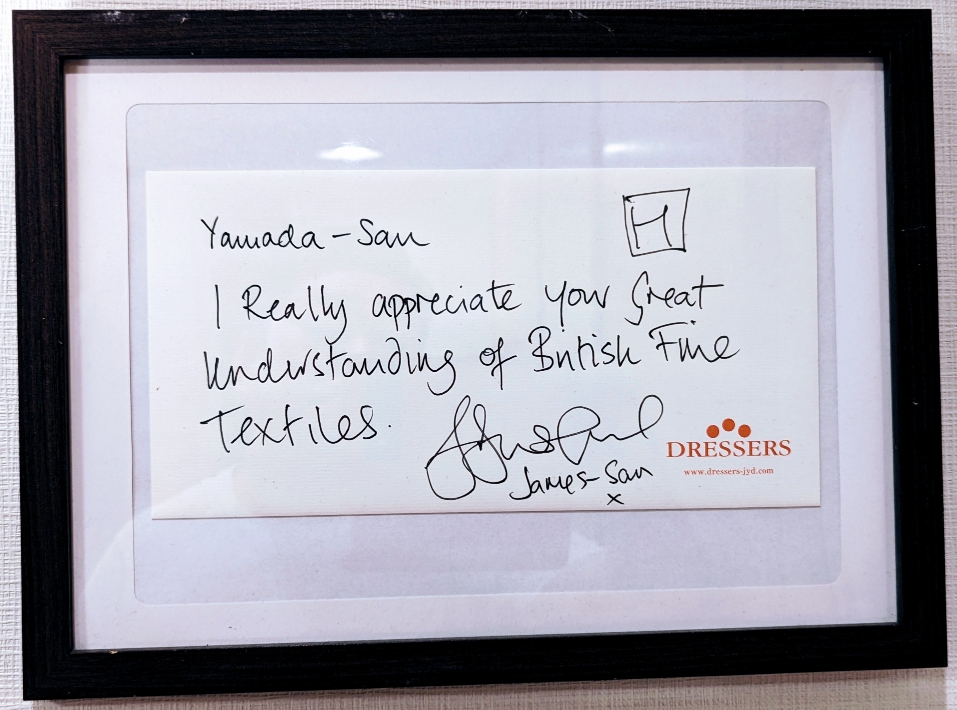 Yamada-San
H
I Really appreciate your Great
Understanding of British Fine
Textiles.
James-San
x
DRESSERS
www.dressers-jyd.com